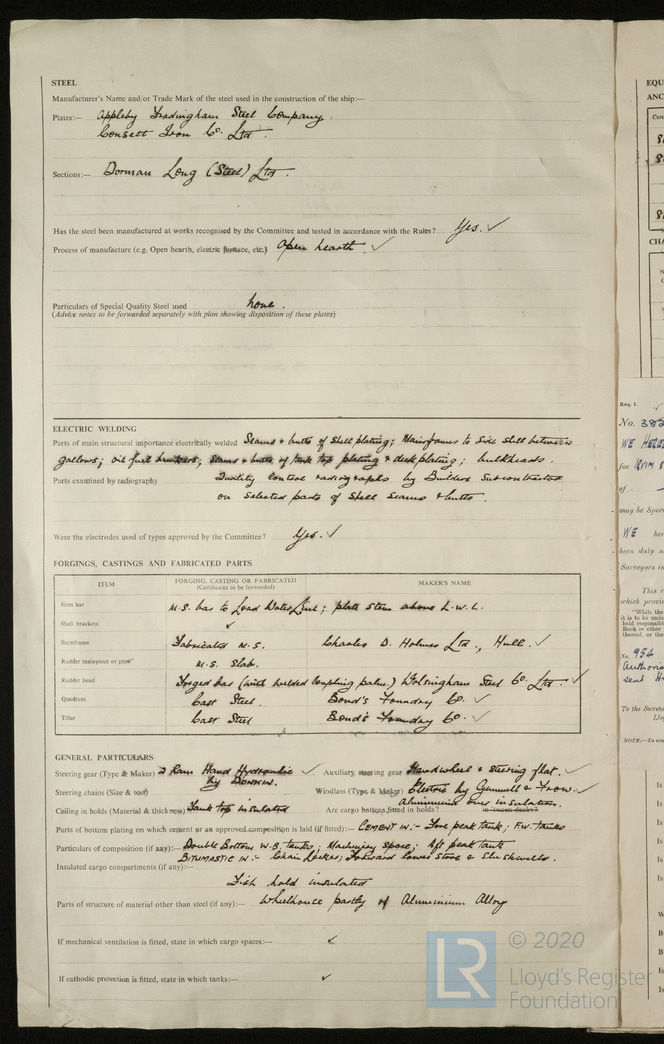 STEEL
Manufacturer's Name and/or Trade Mark of the steel used in the construction of the ship:—
Plates:— Appleby Frodingham Steel Company.
Consett Iron Co. Ltd.
Sections:— Dorman Long (Steel) Ltd.
Has the steel been manufactured at works recognised by the Committee and tested in accordance with the Rules? Yes. ✓
Process of manufacture (e.g. Open hearth, electric furnace, etc.) Open hearth ✓
Particulars of Special Quality Steel used none.
(Advice notes to be forwarded separately with plan showing disposition of these plates)
ELECTRIC WELDING
Parts of main structural importance electrically welded Seams & butts of shell plating; Mainframes to side shell between
gallows; oil fuel bunkers; seams & butts of tank top plating & deck plating; bulkheads.
Parts examined by radiography Quality control radiographs by Builders Subcontractor
on selected parts of shell seams & butts.
Were the electrodes used of types approved by the Committee? Yes. ✓
FORGINGS, CASTINGS AND FABRICATED PARTS
ITEM FORGING, CASTING OR FABRICATED MAKER'S NAME
(Certificates to be forwarded)
Stem bar M.S. bar to Load Water Line; plate stem above L.W.L.
Shaft brackets ✓
Sternframe Fabricated M.S. Charles D. Holmes Ltd., Hull. ✓
Rudder mainpiece or post M.S. Slab.
Rudder head Forged bar (with welded coupling palm) Wolsingham Steel Co. Ltd. ✓
Quadrant Cast Steel. Bond's Foundry Co. ✓
Tiller Cast Steel Bond's Foundry Co. ✓
GENERAL PARTICULARS
Steering gear (Type & Maker) 2 Ram Hand Hydraulic ✓ Auxiliary steering gear Handwheel & steering flat. ✓
by DONKIN.
Steering chains (Size & test) Windlass (Type & Maker) Electric by Gemmell & Frow. ✓
Ceiling in holds (Material & thickness) Tank top insulated Are cargo battens fitted in holds? Aluminium over insulation.
in 'tween decks?
Parts of bottom plating on which cement or an approved composition is laid (if fitted):— CEMENT IN:- Fore peak tank; F.W. tanks
Particulars of composition (if any):— Double Bottom W.B. tanks; Machinery space; Aft peak tank
BITUMASTIC IN:- Chain Locker; Forward lower store & slushwells.
Insulated cargo compartments (if any):—
Fish hold insulated
Parts of structure of material other than steel (if any):— Wheelhouse partly of Aluminium Alloy
If mechanical ventilation is fitted, state in which cargo spaces:— ✓
If cathodic protection is fitted, state in which tanks:— ✓
LR © 2020
Lloyd's Register
Foundation
EQU
ANC
CHA
Req. 1.
No. 382
WE HERE
for
of
may be Spec
WE her
been duly
Surveyors in
This r
which provi
"While the
it is to be under
held responsible
Book or other
thereof, or the
No. 954
Authoris
sent H
To the Secreta
Lloy
NOTE.—To
Is
Is
Is
Is
Is
Is
W
B
B
Is
Is